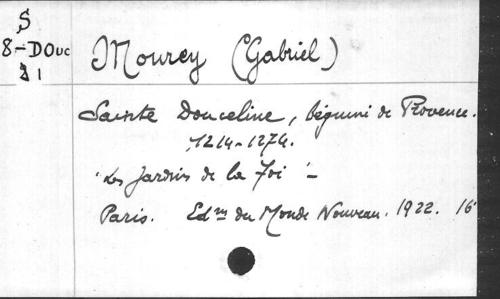 S
8-DOUC
21
Mourey (Gabriel)
Sainte Douceline, béguine de Provence.
1214-1274.
"Les Jardins de la Foi" -
Paris. Ed.ns du Monde Nouveau. 1922. 16°